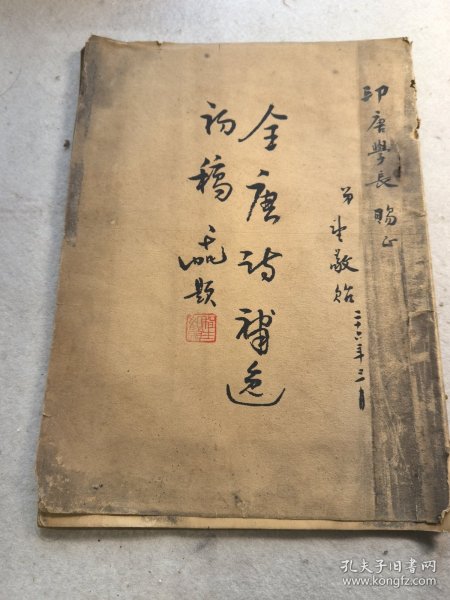 印唐學長 賜正
弟望敬貽
二十六年三月
全唐詩補逸
初稿
題
孔夫子旧书网
www.kongfz.com